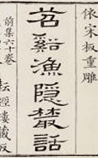 依宋板重雕
苕谿漁隱叢話
前集六十卷
耘經樓藏板